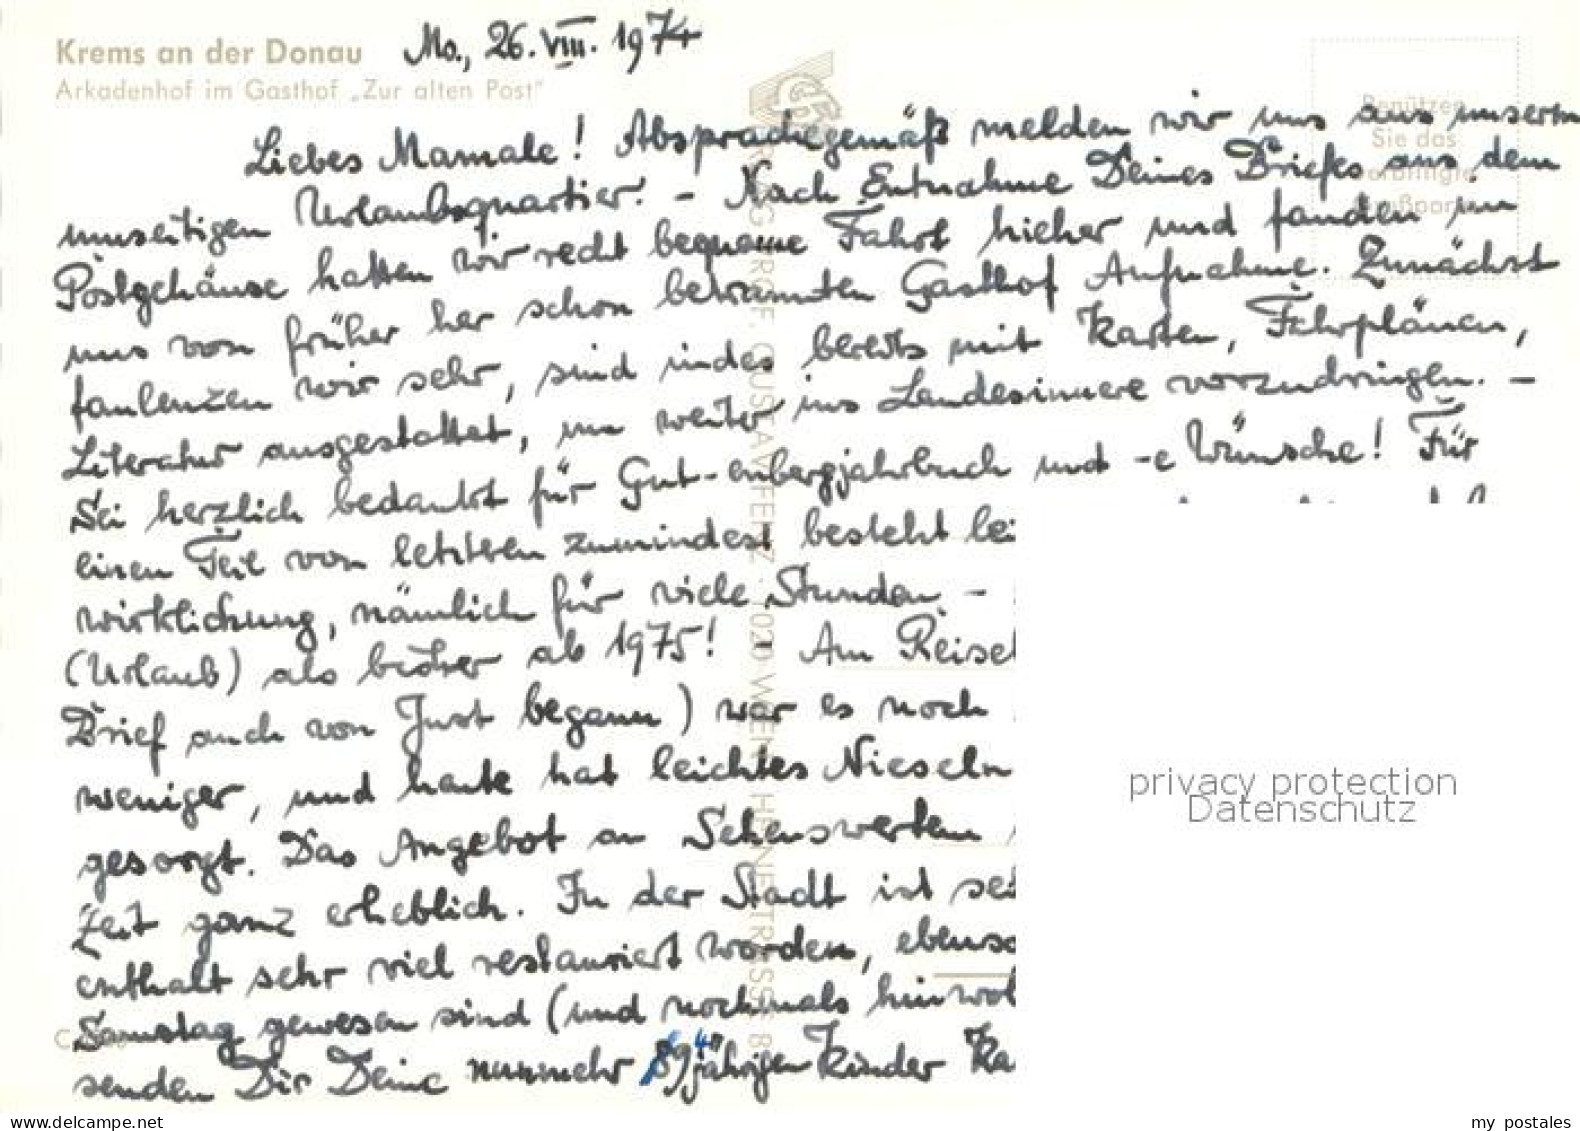 Krems an der Donau
Arkadenhof im Gasthof „Zur alten Post"
Mo., 26. VIII. 1974
Benützen
Sie das
Liebes Mamale! Absprachegemäß melden wir uns aus unserm
umseitigen Urlaubsquartier. – Nach Entnahme Deines Briefes aus dem
Postgehäuse hatten wir recht bequeme Fahrt hieher und fanden im
uns von früher her schon bekannten Gasthof Aufnahme. Zunächst
faulenzen wir sehr, sind indes bereits mit Karten, Fahrplänen,
Literatur ausgestattet, um weiter ins Landesinnere vorzudringen. –
Sei herzlich bedankt für Gut-enbergjahrbuch und -e Wünsche! Für
einen Teil von letzteren zumindest besteht lei
wirklichung, nämlich für viele Stunden –
(Urlaub) als bisher ab 1975! Am Reise
Brief auch von Just begann) war es noch
weniger, und heute hat leichtes Nieseln
gesorgt. Das Angebot an Sehenswertem
Zeit ganz erheblich. In der Stadt ist sei
enthalt sehr viel restauriert worden, ebenso
Samstag gewesen sind (und nochmals hinwol
senden Dir Deine nunmehr jährigen Kinder Ka
VERLAG PROF. GUSTAV FENZ · 1020 WIEN · HEINESTRASSE 8
privacy protection
Datenschutz
www.delcampe.net
my postales